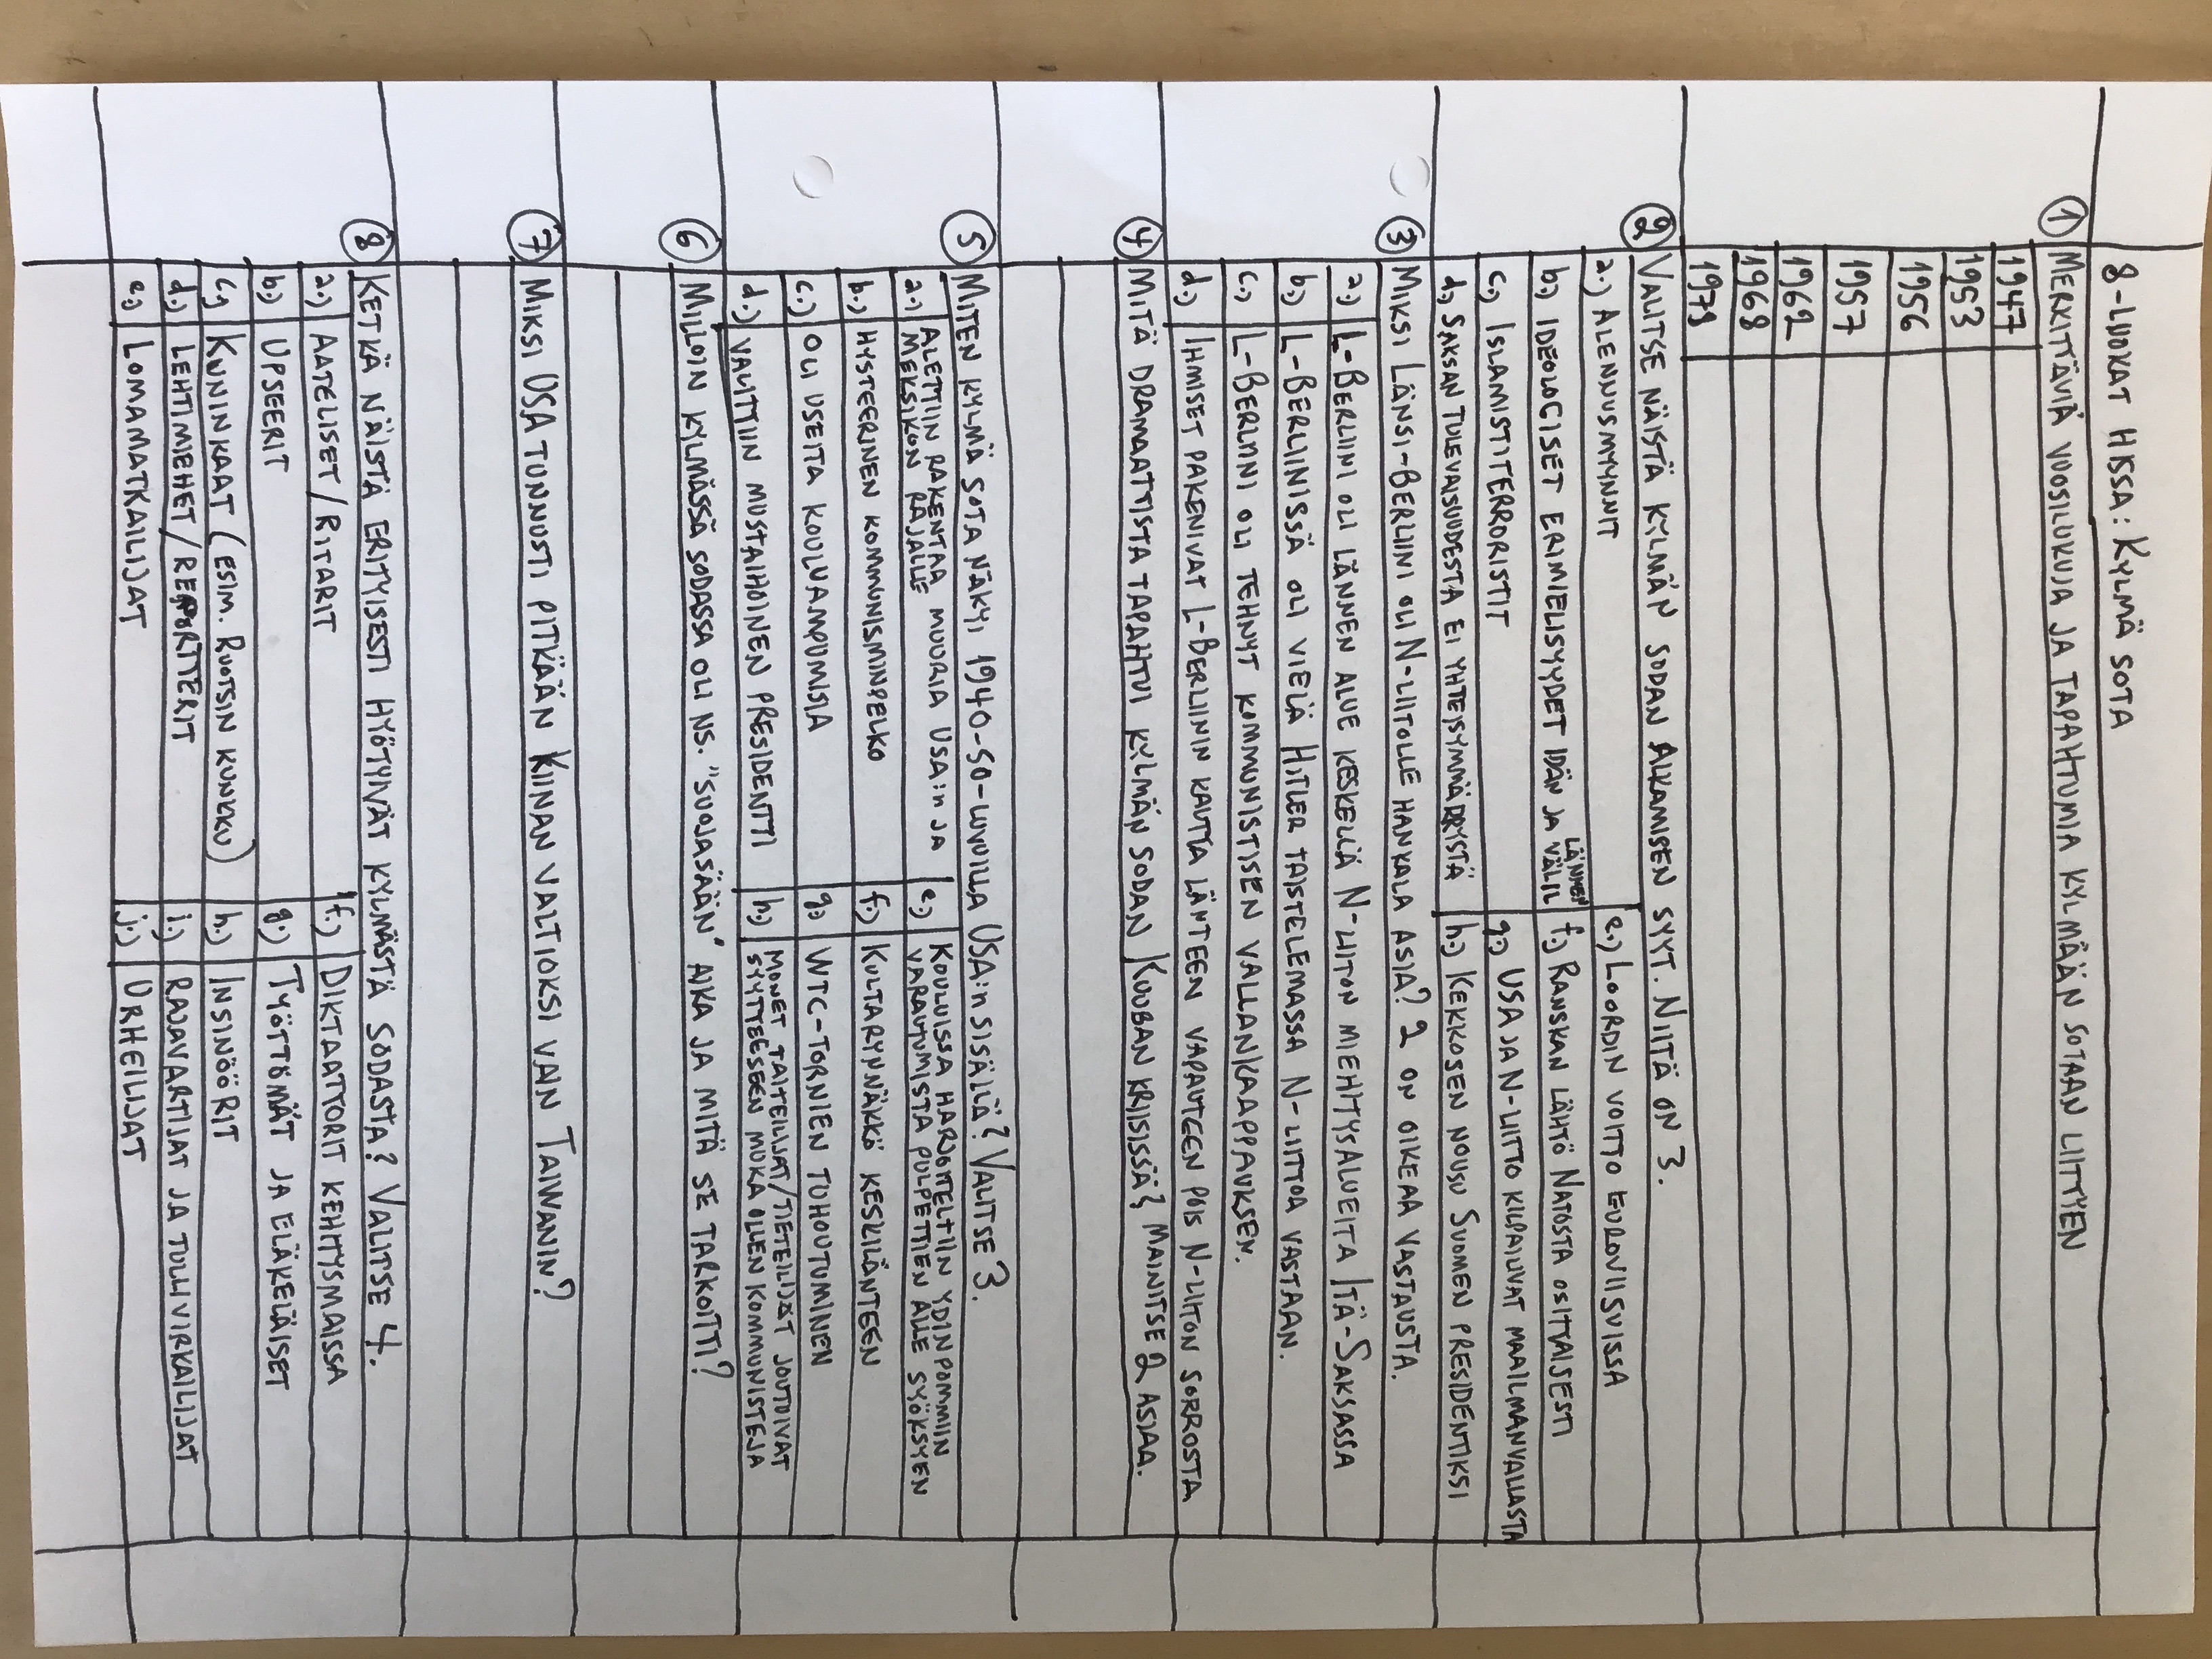 8-LUOKAT HISSA: KYLMÄ SOTA
① MERKITTÄVIÄ VUOSILUKUJA JA TAPAHTUMIA KYLMÄÄN SOTAAN LIITTYEN
1947
1953
1956
1957
1962
1968
1979
② VALITSE NÄISTÄ KYLMÄN SODAN ALKAMISEN SYYT. NIITÄ ON 3.
a.) ALENNUSMYYNNIT
e.) LOORDIN VOITTO EUROVIISUISSA
b.) IDEOLOGISET ERIMIELISYYDET IDÄN JA LÄNNEN VÄLIL
f.) RANSKAN LÄHTÖ NATOSTA OSITTAISESTI
c.) ISLAMISTITERRORISTIT
g.) USA JA N-LIITTO KILPAILIVAT MAAILMANVALLASTA
d.) SAKSAN TULEVAISUUDESTA EI YHTEISYMMÄRRYSTÄ
h.) KEKKOSEN NOUSU SUOMEN PRESIDENTIKSI
③ MIKSI LÄNSI-BERLIINI OLI N-LIITOLLE HANKALA ASIA? 2 ON OIKEAA VASTAUSTA.
a.) L-BERLIINI OLI LÄNNEN ALUE KESKELLÄ N-LIITON MIEHITYSALUEITA ITÄ-SAKSASSA
b.) L-BERLIINISSÄ OLI VIELÄ HITLER TAISTELEMASSA N-LIITTOA VASTAAN.
c.) L-BERLIINI OLI TEHNYT KOMMUNISTISEN VALLANKAAPPAUKSEN.
d.) IHMISET PAKENIVAT L-BERLIININ KAUTTA LÄNTEEN VAPAUTEEN POIS N-LIITON SORROSTA
④ MITÄ DRAMAATTISTA TAPAHTUI KYLMÄN SODAN KUUBAN KRIISISSÄ? MAINITSE 2 ASIAA.
⑤ MITEN KYLMÄ SOTA NÄKYI 1940-50-LUVUILLA USA:n SISÄLLÄ? VALITSE 3.
a.) ALETTIIN RAKENTAA MUURIA USA:n JA
MEKSIKON RAJALLE
e.) KOULUISSA HARJOITELTIIN YDINPOMMIIN
VARAUTUMISTA PULPETTIEN ALLE SYÖKSYEN
b.) HYSTEERINEN KOMMUNISMINPELKO
f.) KULTARYNNÄKKÖ KESKILÄNTEEN
c.) OLI USEITA KOULUAMPUMISIA
g.) WTC-TORNIEN TUHOUTUMINEN
d.) VALITTIIN MUSTAIHOINEN PRESIDENTTI
h.) MONET TAITEILIJAT/TIETEILIJÄT JOUTUIVAT
SYYTTEESEEN MUKA OLLEN KOMMUNISTEJA
⑥ MILLOIN KYLMÄSSÄ SODASSA OLI NS. "SUOJASÄÄN" AIKA JA MITÄ SE TARKOITTI?
⑦ MIKSI USA TUNNUSTI PITKÄÄN KIINAN VALTIOKSI VAIN TAIWANIN?
⑧ KETKÄ NÄISTÄ ERITYISESTI HYÖTYIVÄT KYLMÄSTÄ SODASTA? VALITSE 4.
a.) AATELISET/RITARIT
f.) DIKTAATTORIT KEHITYSMAISSA
b.) UPSEERIT
g.) TYÖTTÖMÄT JA ELÄKELÄISET
c.) KUNINKAAT (ESIM. RUOTSIN KUNKKU)
h.) INSINÖÖRIT
d.) LEHTIMIEHET/REPORTTERIT
i.) RAJAVARTIJAT JA TULLIVIRKAILIJAT
e.) LOMAMATKAILIJAT
j.) URHEILIJAT